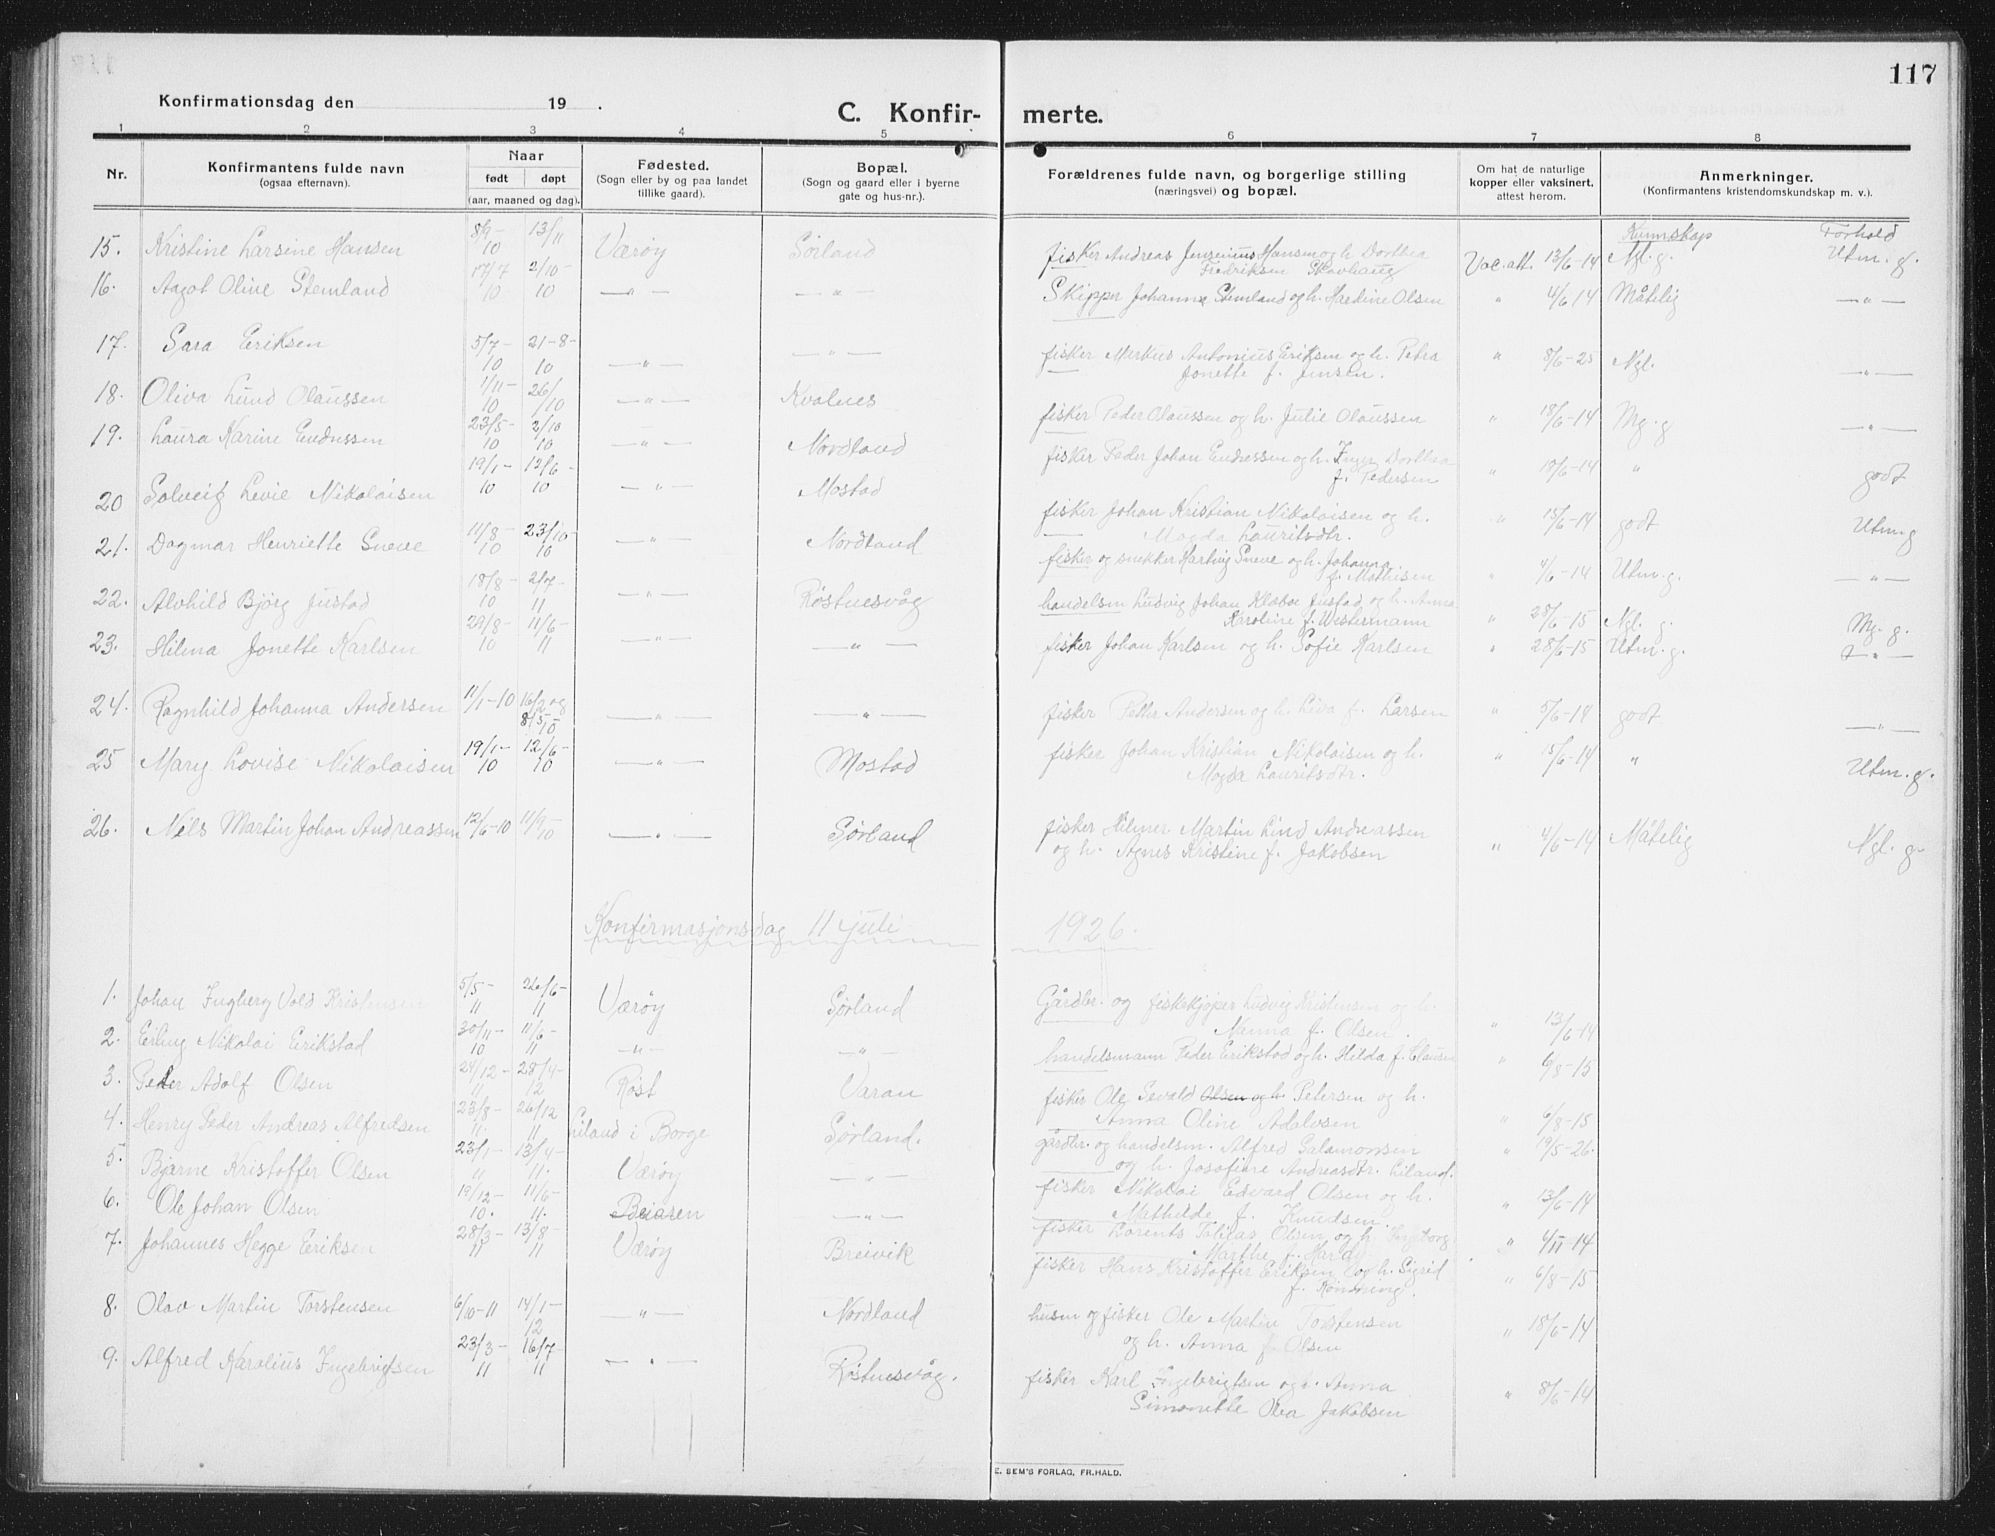 117
Konfirmationsdag den 19 .
C. Konfir- merte.
1 2 3 4 5 6 7 8
Nr.
Konfirmantens fulde navn
(ogsaa efternavn).
Naar
født døpt
(aar, maaned og dag).
Fødested.
(Sogn eller by og paa landet
tillike gaard).
Bopæl.
(Sogn og gaard eller i byerne
gate og hus-nr.).
Forældrenes fulde navn, og borgerlige stilling
(næringsvei) og bopæl.
Om hat de naturlige
kopper eller vaksinert.
attest herom.
Anmerkninger.
(Konfirmantens kristendomskundskap m. v.).
Kunnskap Forhold
15. Kristine Larsine Hansen 8/9-10 13/11 Værøy Sørland fisker Andreas Jensenius Hansen og h. Dorthea Vac. att. 13/6-14 Ngl. g. Utm. g.
Fredriksen Skavhaug
16. Aagot Oline Stemland 17/7 10 2/10-10 —"— —"— Skipper Johannes Stemland og h. Hardine Olsen " 4/6 14 Måtelig —"—
17. Sara Eriksen 5/7-10 21-8-10 —"— —"— fisker Markus Antonius Eriksen og h. Petra " 8/6-25 Ngl. —"—
Jonette f. Jensen.
18. Oliva Lund Olaussen 1/11-10 26/10 —"— Kvalnes fisker Peder Olaussen og h. Julie Olaussen " 18/6-14 Mg. g —"—
19. Laura Karine Endresen 23/5-10 2/10 10 —"— Nordland fisker Peder Johan Endressen og h. Inger Dorthea " 18/6-14 " godt
f. Pedersen
20 Solveig Levie Nikolaisen 19/1-10 12/6-10 —"— Mostad fisker Johan Kristian Nikolaisen og h. " 15/6-14 godt Utm g
Magda Lauritsdtr.
21. Dagmar Henriette Sneve 11/8-10 23/10-10 —"— Nordland fisker og snekker Hartvig Sneve og h. Johanna " 4/6-14 Utm. g. —"—
f. Mathisen
22. Alvhild Bjørg Justad 18/8-10 2/7-11 —"— Røstnesvåg handelsm Ludvig Johan Klæboe Justad og h. Anna " 28/6-15 Ngl. g. Mg. g.
Karoline f. Westermann
23. Hilma Jonette Karlsen 29/8-10 11/6-11 —"— —"— fisker Johan Karlsen og h. Sofie Karlsen " 28/6-15 Utm. g. —"—
24. Ragnhild Johanna Andersen 11/1-10 16/2 og 8/5-10 —"— —"— fisker Petter Andersen og h. Liva f. Larsen " 5/6-14 godt —"—
25 Mary Lovise Nikolaisen 19/1-10 12/6-10 —"— Mostad fisker Johan Kristian Nikolaisen og h. " 15/6-14 " Utm. g.
Magda Lauritsdtr.
26. Nils Martin Johan Andreassen 12/6-10 11/9-10 —"— Sørland fisker Hilmer Martin Lind Andreassen " 4/6-14 Måtelig Ngl. g.
og h. Agnes Kristine f. Jakobsen
Konfirmasjonsdag 11 juli 1926.
1. Johan Ingberg Vold Kristensen 5/5-11 26/6-11 Værøy Sørland Gårdbr. og fiskekjøper Ludvig Kristensen og h. " 13/6-14
Nanna f. Olsen.
2. Erling Nikolai Erikstad 30/11-10 11/6-11 —"— —"— handelsmann Peder Erikstad og h. Hilda f. Clausen " 6/8-15
3. Peder Adolf Olsen 24/12-11 28/4-12 Røst Varan fisker Ole Sevald Olsen og h Petersen og h. " 6/8-15
Anna Oline Adolvsen
4. Henry Peder Andreas Alfredsen 23/8-11. 26/12 11 Liland i Borge Sørland. gårdbr. og handelsm. Alfred Salamonsen " 19/5-26.
og h. Josefine Andreasdtr. Liland.
5. Bjarne Kristoffer Olsen 23/1-11 13/4-11. Værøy —"— fisker Nikolai Edvard Olsen og h. " 13/6-14
Mathilde f. Knudsen.
6. Ole Johan Olsen 19/12-10. 11/6-11. Beiaren —"— fisker Lorents Tobias Olsen og h. Ingeborg " 4/11-14
Marthe f. Hardy
7. Johannes Hegge Eriksen 28/3-11 13/8-11 Værøy Breivik fisker Hans Kristoffer Eriksen og h. Sigrid " 6/8-15
f. Rønning.
8. Olav Martin Torstensen 6/10-11 14/1-12 —"— Nordland husm og fisker Ole Martin Torstensen " 18/6-14
og h. Anna f Olsen
9. Alfred Karolius Ingebrigtsen 23/3-11 16/7-11 —"— Røstnesvåg. fisker Karl Ingebrigtsen og h. Anna " 8/6-14
Simonette Olea Jakobsen
E. SEM'S FORLAG, FR.HALD.